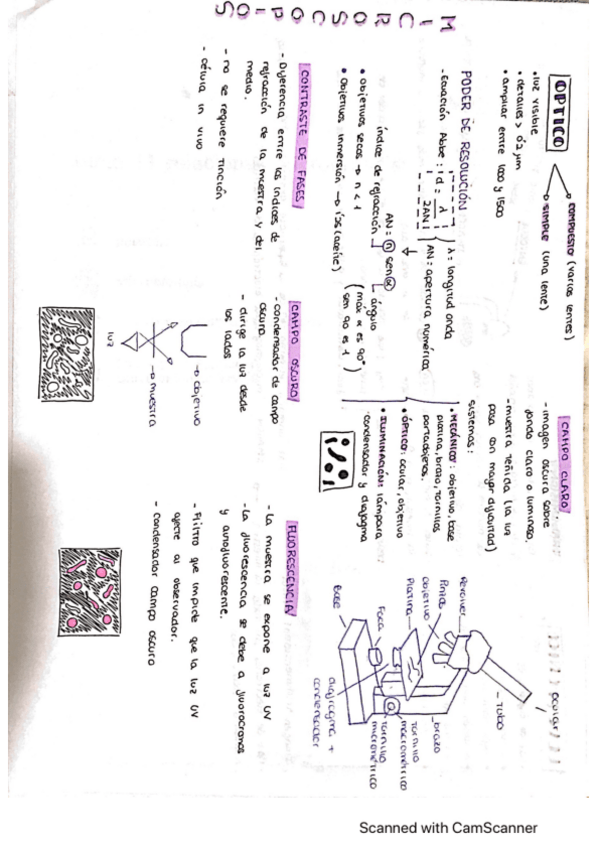 MICROSCOPIOS
ÓPTICO
COMPUESTO (varias lentes)
SIMPLE (una lente)
• luz visible
• detalles > 0'2 µm
• ampliar entre 1000 y 1500
PODER DE RESOLUCIÓN
- Ecuación Abbe: d = λ / 2AN
λ = longitud onda
AN: apertura numérica
AN = n sen α
índice de refracción
ángulo
(max α es 90°
sen 90 es 1)
• Objetivos secos → n < 1
• Objetivos inmersión → (aceite)
CONTRASTE DE FASES
- Diferencia entre los índices de
refracción de la muestra y del
medio.
- no se requiere tinción
- célula in vivo
CAMPO OSCURO
- condensador de campo
oscuro.
- dirige la luz desde
los lados
objetivo
muestra
luz
CAMPO CLARO
- imagen oscura sobre
fondo claro o luminoso.
- muestra teñida (la luz
pasa con mayor dificultad)
sistemas:
• MECÁNICO: objetivo, base
platina, brazo, tornillos
portaobjetos.
• ÓPTICO: ocular, objetivo
• ILUMINACIÓN: lámpara
condensador y diafragma
FLUORESCENCIA
- La muestra se expone a luz UV
- La fluorescencia se debe a fluorocromos
y autofluorescente.
- Filtro que impide que la luz UV
afecte al observador.
- Condensador campo oscuro
ocular
tubo
Revólver
Pinzas
objetivo
Platina
brazo
tornillo
macrométrico
tornillo
micrométrico
Foco
Base
diafragma +
condensador
Scanned with CamScanner